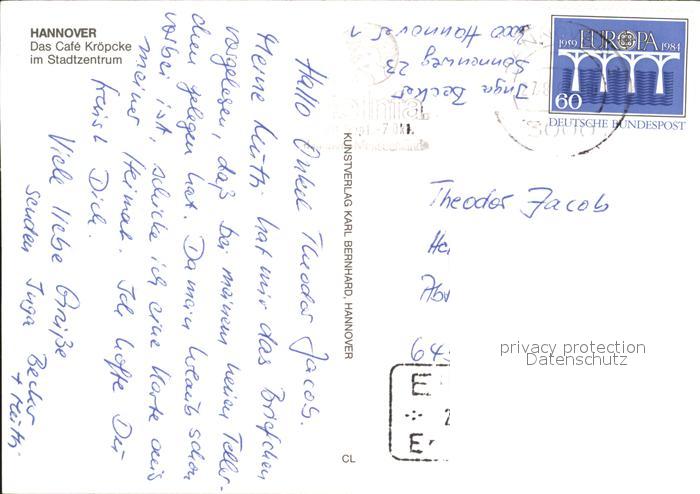 HANNOVER
Das Café Kröpcke
im Stadtzentrum
Hallo Onkel Theodor Jacob.
Meine Mutti hat mir das Briefchen
vorgelesen, daß bei meinem neuen Teller-
chen gelegen hat. Da mein Urlaub schon
vorbei ist, schicke ich eine Karte aus
meiner Heimat. Ich hoffe Du
freust Dich.
Viele liebe Grüße
senden Inga Becker
+ Mutti
KUNSTVERLAG KARL BERNHARD, HANNOVER
CL
Inga Becker
Sonnenweg 23
3000 Hannover 1
1959 EUROPA 1984
60
DEUTSCHE BUNDESPOST
Theodor Jacob
645
privacy protection
Datenschutz